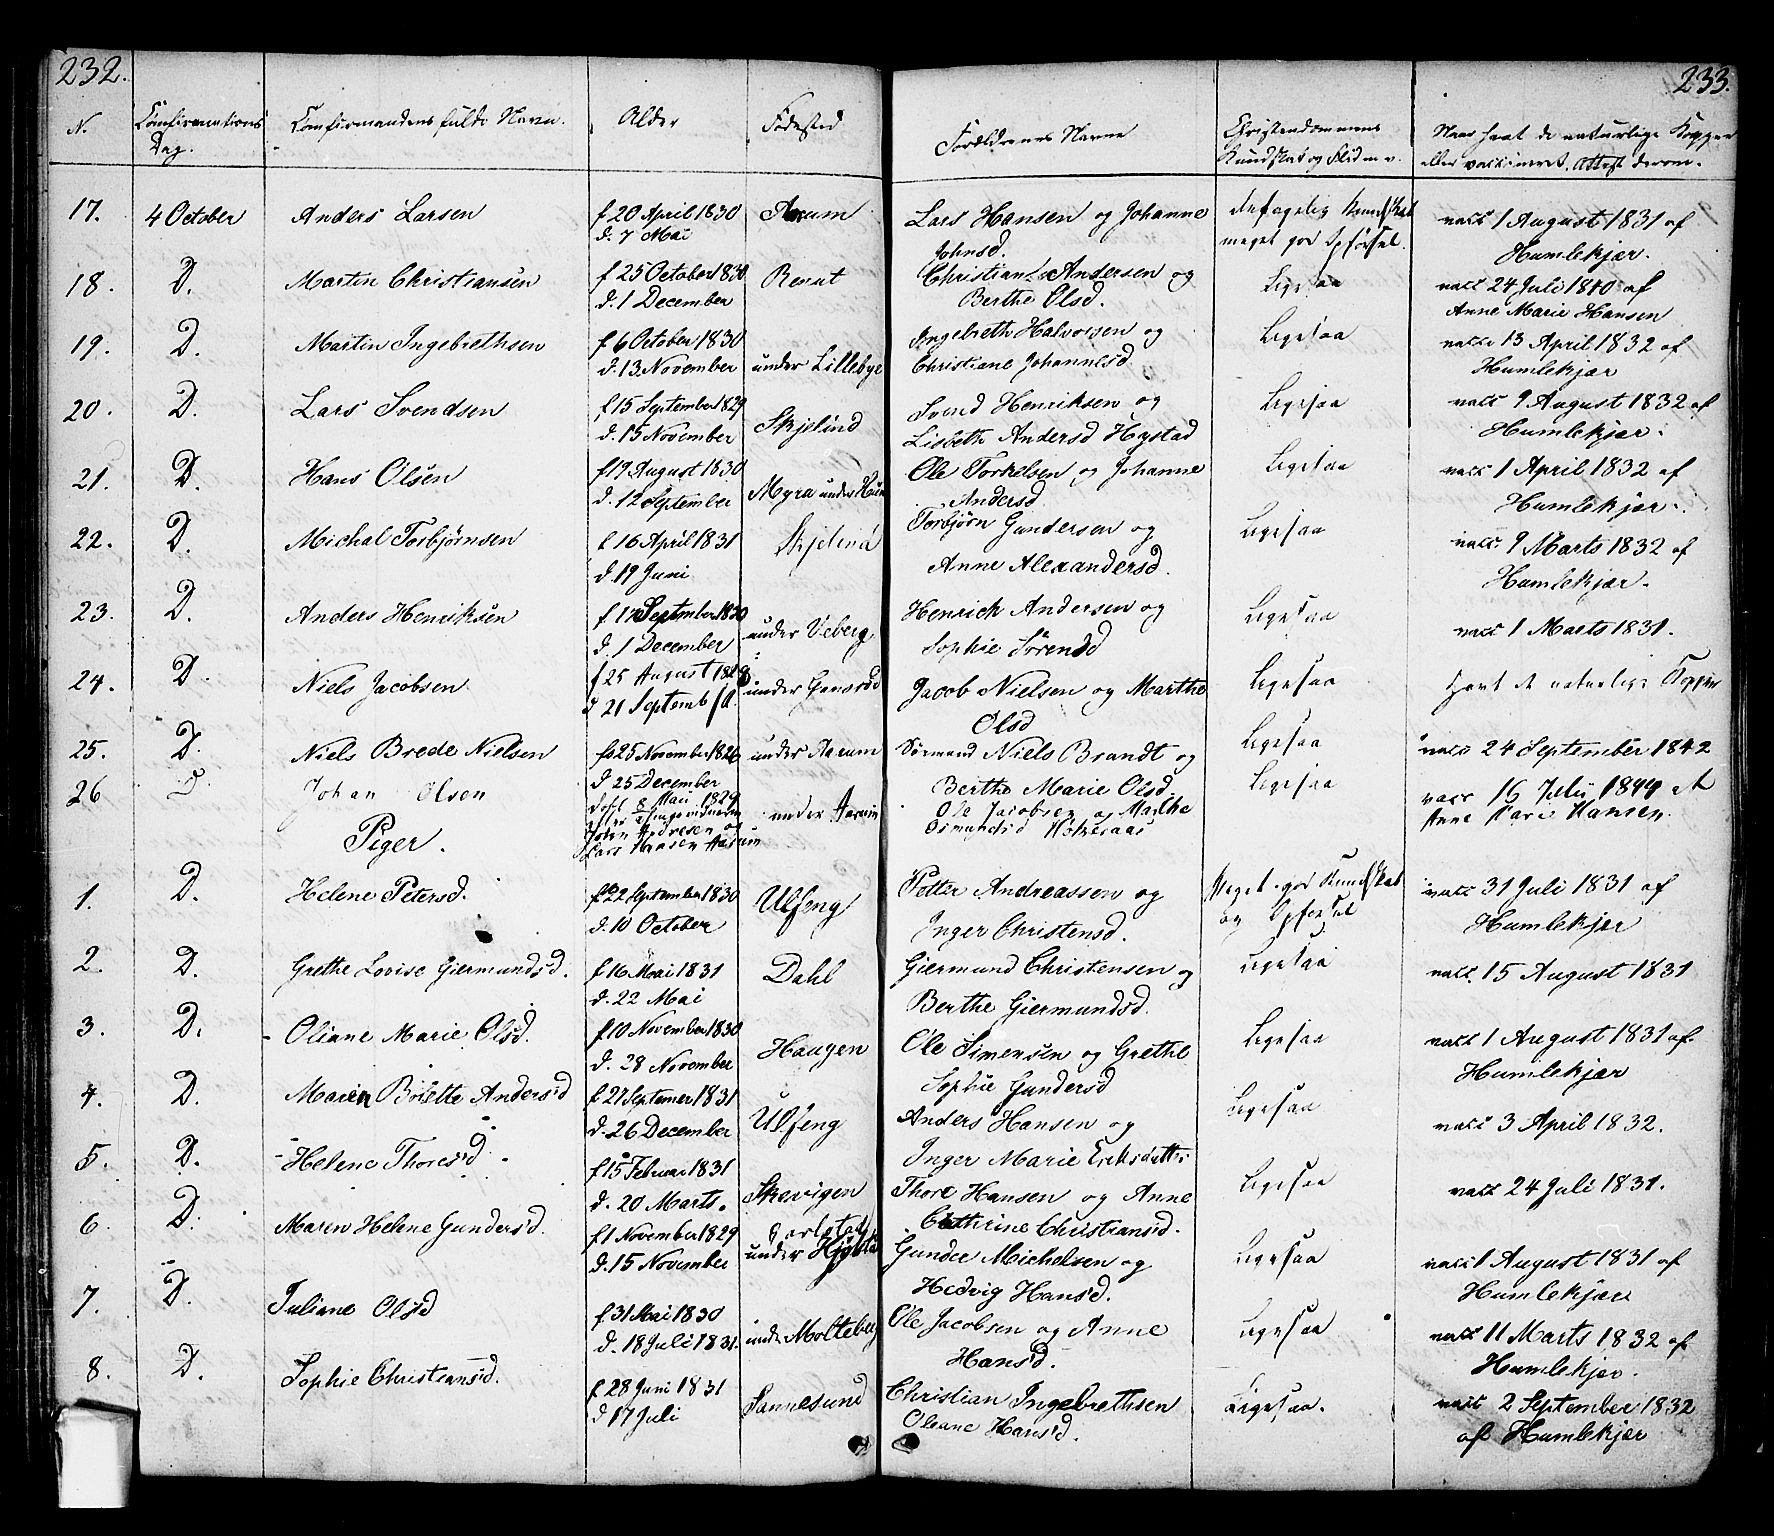 232.
233.
N. Confirmations Dag. Confirmandens fulde Navn. Alder Fødested Forældrenes Navne Christendommens Kundskab og Flid m. v. Naar havt de naturlige Kopper eller vaccineret. Attest derom.
17. 4 October Anders Larsen f 20 April 1830 Aarum Lars Hansen og Johanne
d. 7 Mai Johnsd. meget god Opførsel. vacc 1 August 1831 af
Humlekjær.
18. D. Martin Christiansen f 25 October 1830 Christian Andersen og Ligesaa vacc 24 Juli 1840 af
d. 1 December Berthe Olsd. Anne Marie Hansen
19. D. Martin Ingebrethsen f 6 October 1830 Ingebreth Halvorsen og Ligesaa vacc 13 April 1832 af
d. 13 November under Lillebye Christiane Johannesd Humlekjær
20. D. Lars Svendsen f 15 September 1829 Skjelind Svend Henriksen og Ligesaa vacc 9 August 1832 af
d. 15 November Lisbeth Andersd Hystad Humlekjær.
21. D. Hans Olsen f 19 August 1830 Ole Torkelsen og Johanne Ligesaa vacc 1 April 1832 af
d. 12 September Myra under Andersd Humlekjær.
22. D. Michal Torbjørnsen f 16 April 1831 Skjelind Torbjørn Gundersen og Ligesaa vacc. 9 Marts 1832 af
d. 19 Juni Anne Alexandersd. Humlekjær.
23. D. Anders Henriksen September 1830 under Veberg Henrich Andersen og Ligesaa vacc 1 Marts 1831.
d. 1 December Sophie Sørensd
24. D. Niels Jacobsen f 25 August under Jacob Nielsen og Marthe Ligesaa Havt de naturlige Kopper
d 21 Septemb Olsd
25. D. Niels Brede Nielsen 25 November under Aarum Sørmand Niels Brandt og Ligesaa vacc 24 September 1842
d. 25 December Berthe Marie Olsd.
26 D Johan Olsen 8 Mai 1829 under Aarum Ole Jacobsen og Marthe Ligesaa vacc 16 Juli 1844 af
Johan Andresen og Osmundsd Anne Kari Hansen.
Lars Hansen Aarum
Piger.
1. D. Helene Petersd. 22 September 1830 Ulfeng Petter Andreassen og Meget god Kundskab vacc 31 Juli 1831 af
d. 10 October Inger Christensd. og Opførsel Humlekjær
2. D. Grethe Lovise Giermundsd. f 16 Mai 1831 Dahl Giermund Christensen og Ligesaa vacc. 15 August 1831
d. 22 Mai Berthe Giermundsd.
3. D. Oliane Marie Olsd. f 10 November 1830 Haugen Ole Simensen og Grethe Ligesaa vacc 1 August 1831 af.
d. 28 November Sophie Gundersd Humlekjær
4. D. Maren Bolette Andersd f 21 Septemer 1831 Ulfeng Anders Hansen og Ligesaa vacc 3 April 1832.
d. 26 December Inger Marie Eriksdatter
5. D. Helene Thoresd. f 15 Februai 1831 Skevigen Thore Hansen og Anne Ligesaa vacc 24 Juli 1831.
d. 20 Marts. Cathrine Christiansd.
6. D. Maren Helene Gundersd. f 1 November 1829 Gunder Michelsen og Ligesaa vacc 1 August 1831 af
d. 15 November under Hedvig Hansd. Humlekjær
7. D. Juliane Olsd f 31 Mai 1830 under Molteberg Ole Jacobsen og Anne Ligesaa vacc 11 Marts 1832 af
d. 18 Juli 1831. Hansd. Humlekjær.
8. D. Sophie Christiansd. f 28 Juni 1831 Sannesund Christian Ingebrethsen Ligesaa. vacc 2 September 1832
d 17 Juli Oleane Hansd. af Humlekjær